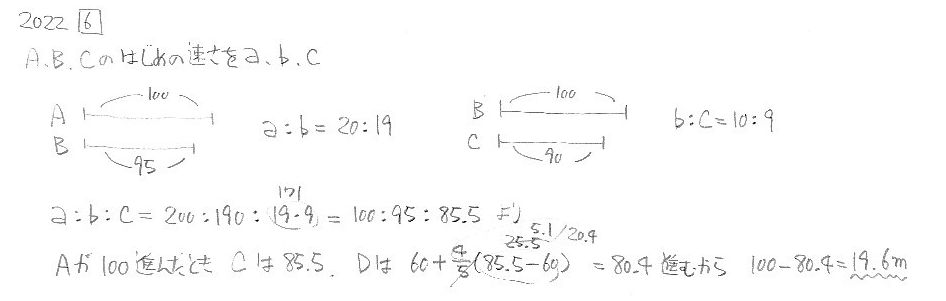 2022 6
A.B.Cのはじめの速さをa、b、c
100 100
A B
a:b=20:19 b:c=10:9
B C
95 90
171
a:b:c=200:190:(19・9)=100:95:85.5 より
5.1/20.4
25.5
Aが100進んだとき Cは85.5. Dは 60+4/5(85.5-60) =80.4 進むから 100-80.4=19.6m